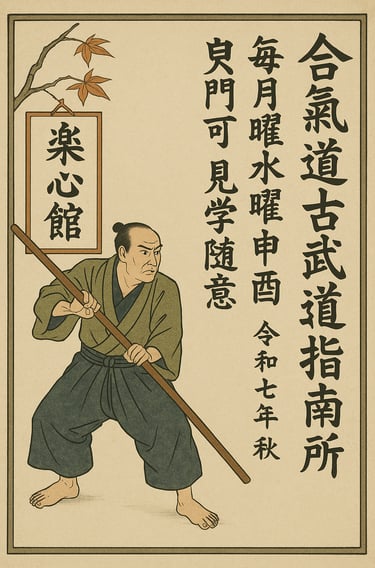 合氣道古武道指南所
毎月曜水曜申酉
令和七年秋
門可 見学随意
楽心館